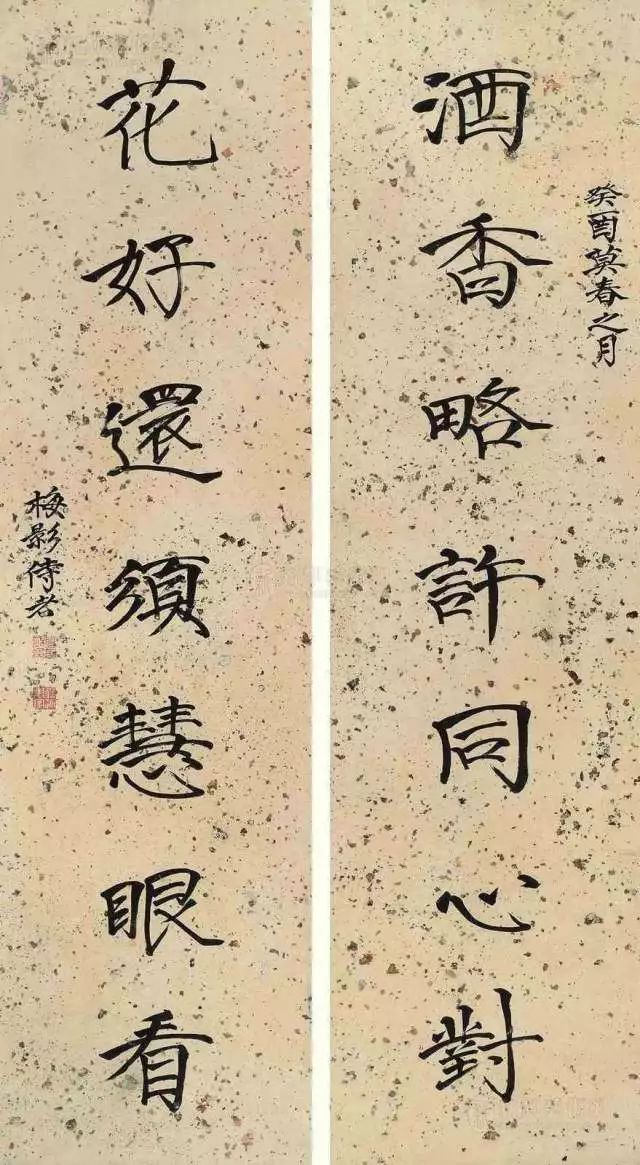 癸酉莫春之月
酒香略許同心對
花好還須慧眼看
梅影侍者